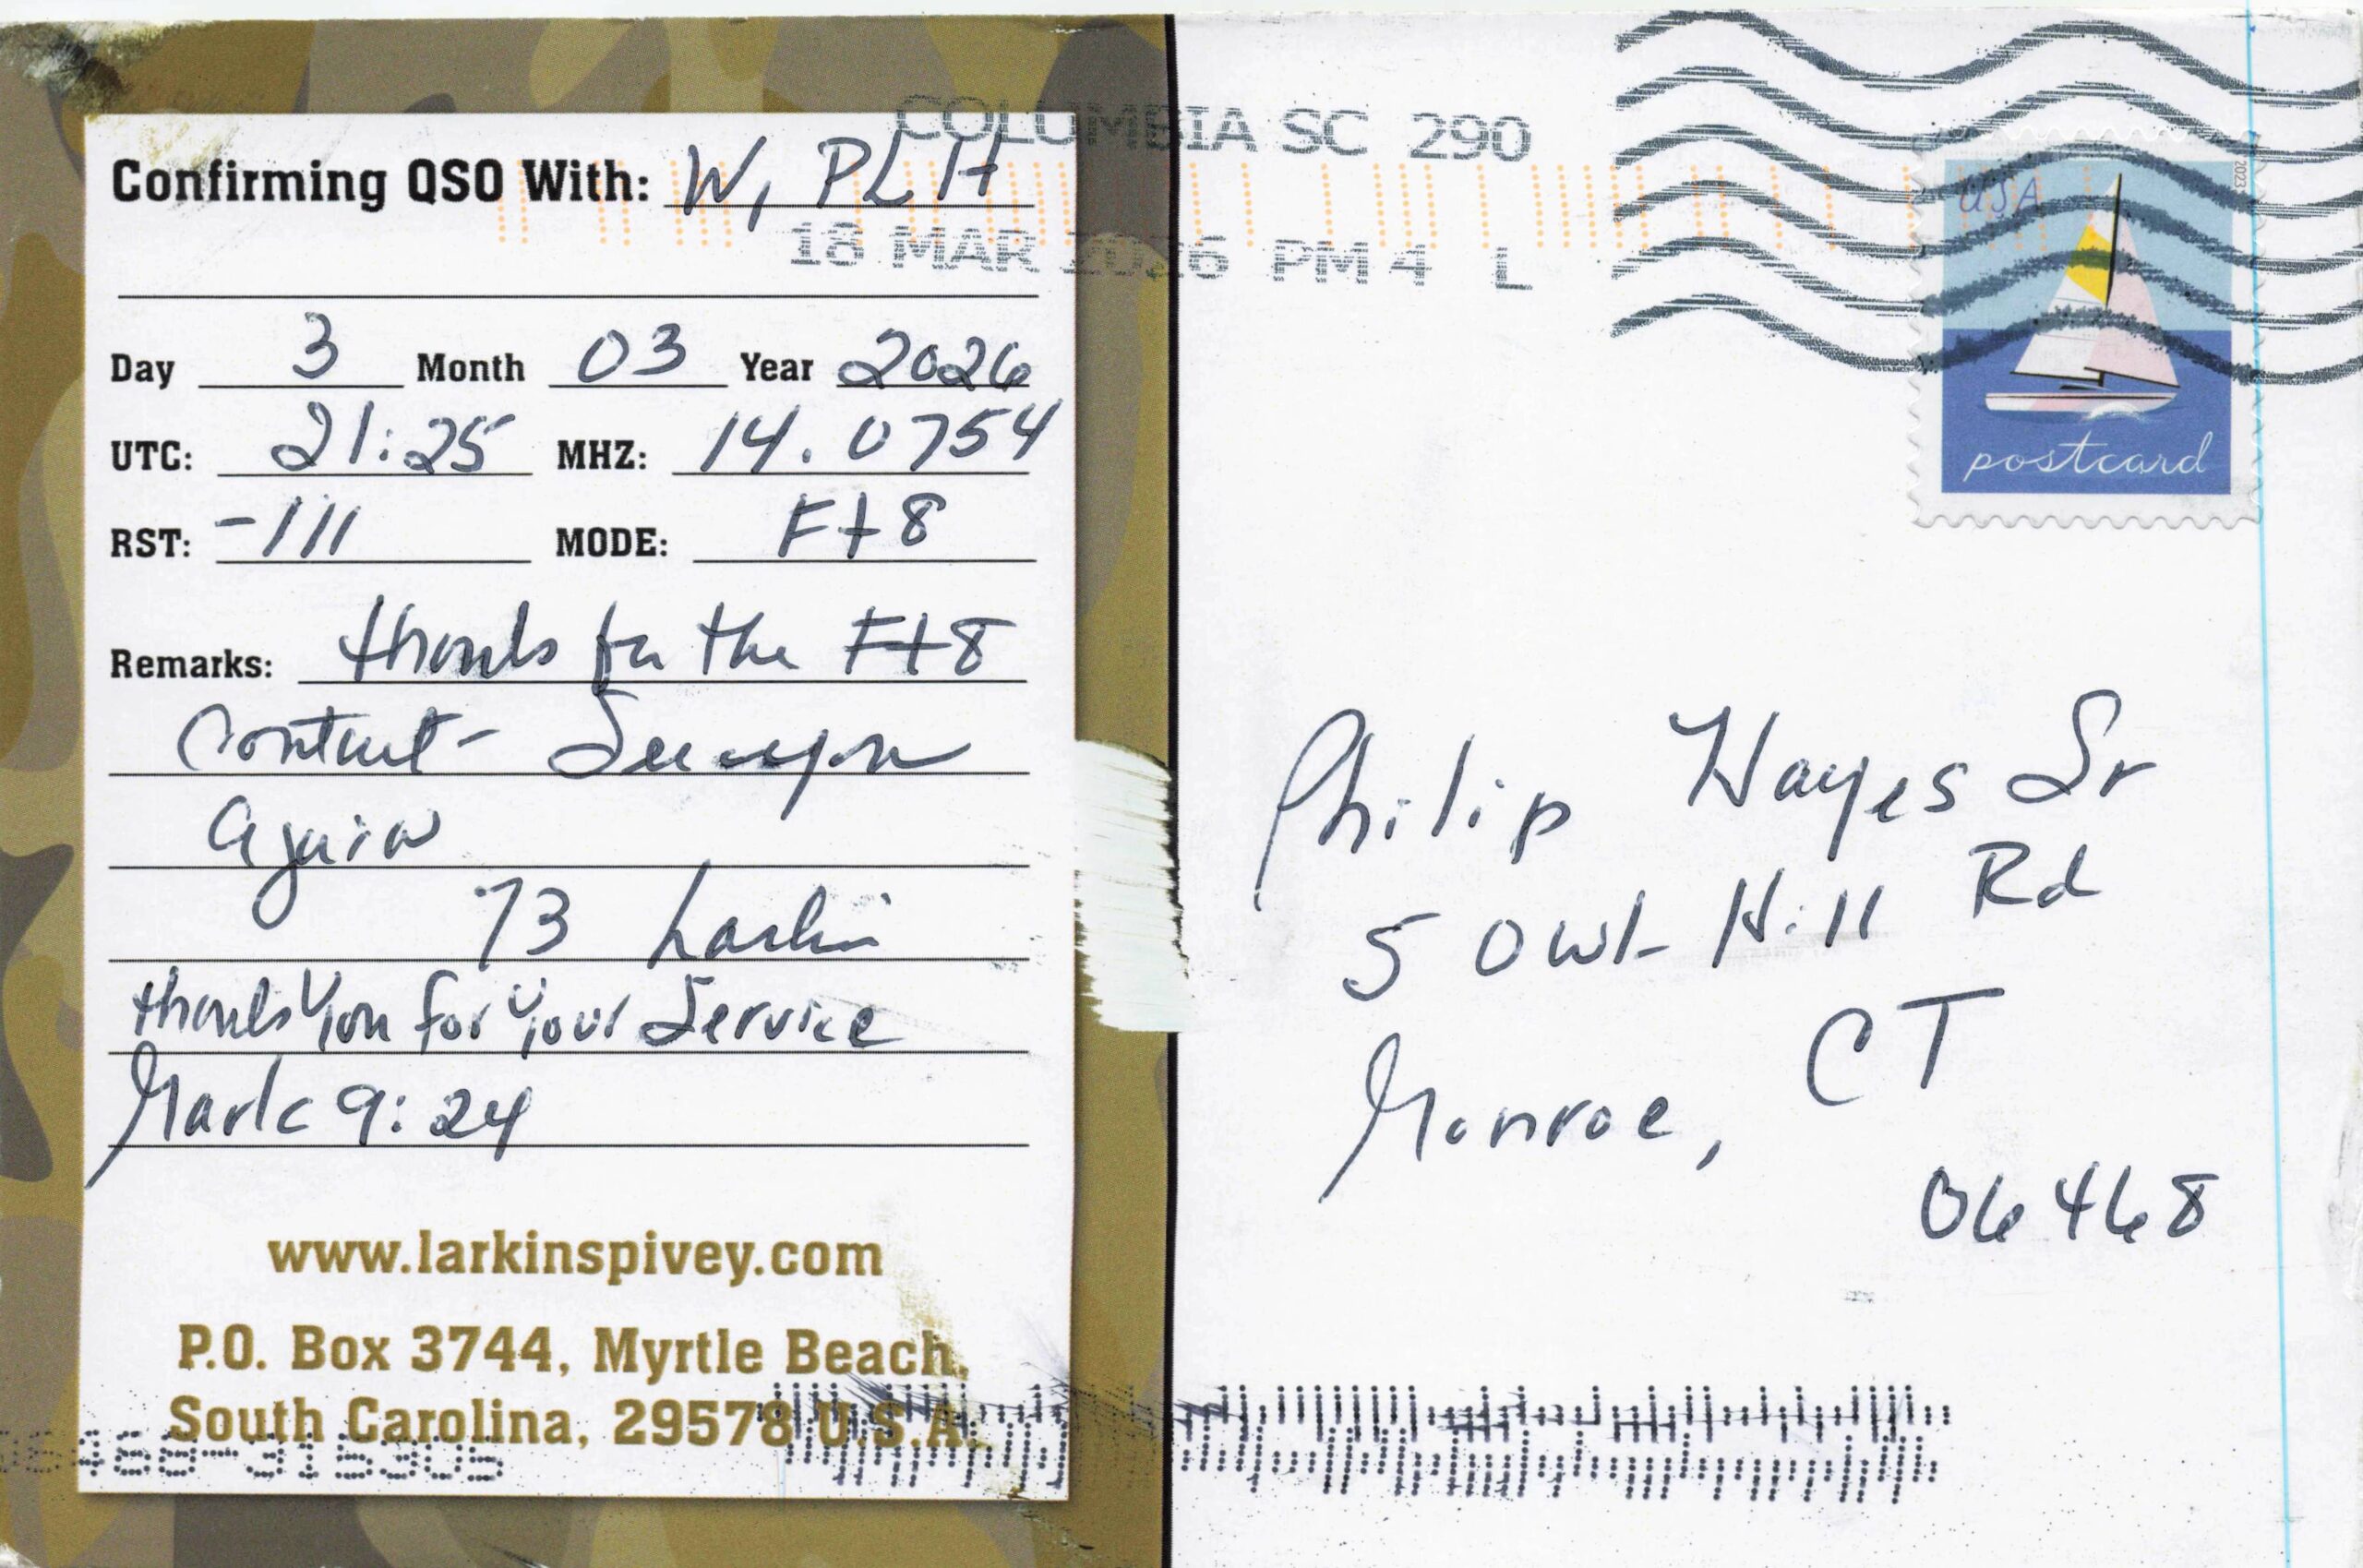 COLUMBIA SC 290
18 MAR 2026 PM 4 L
Confirming QSO With: W1PLH
Day 3 Month 03 Year 2026
UTC: 21:25 MHZ: 14.0754
RST: -111 MODE: Ft8
Remarks: thanks for the Ft8
Contact - See you
Again
73 Larkin
thanks You for Your Service
Mark 9:24
www.larkinspivey.com
P.O. Box 3744, Myrtle Beach,
South Carolina, 29578 U.S.A.
USA
2023
postcard
Philip Hayes Sr
5 Owl Hill Rd
Monroe, CT
06468